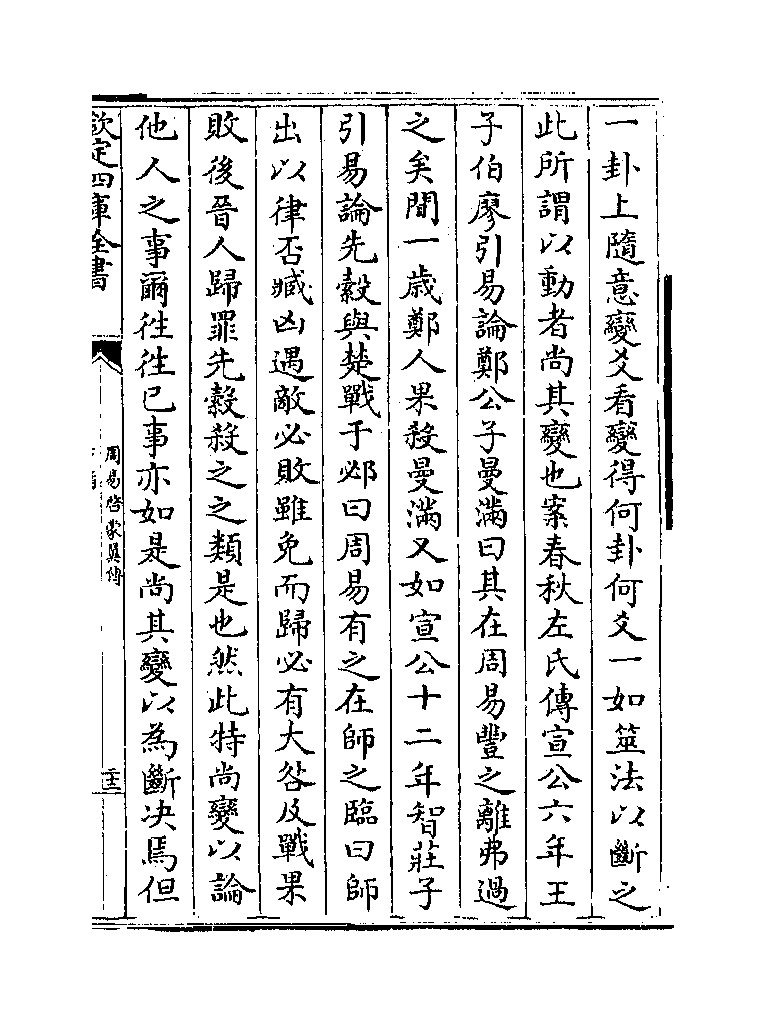 一卦上隨意變爻看變得何卦何爻一如筮法以斷之
此所謂以動者尚其變也案春秋左氏傳宣公六年王
子伯廖引易論鄭公子曼滿曰其在周易豐之離弗過
之矣間一歳鄭人果殺曼滿又如宣公十二年智莊子
引易論先縠與楚戰于邲曰周易有之在師之臨曰師
出以律否臧凶遇敵必敗雖免而歸必有大咎及戰果
敗後晉人歸罪先縠殺之之類是也然此特尚變以論
他人之事爾徃徃已事亦如是尚其變以為斷决焉但
欽定四庫全書
周易啓蒙翼傳
二十三